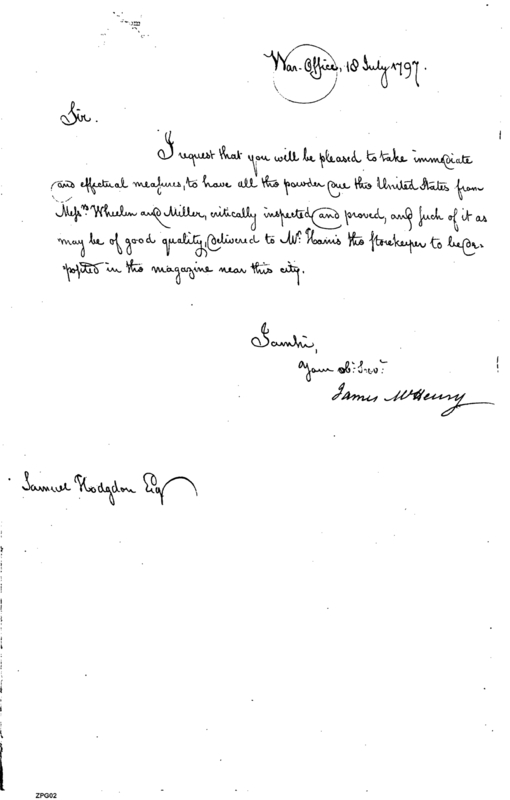 War-Office, 18 July 1797.
Sir.
I request that you will be pleased to take immediate
and effectual measures, to have all the powder due the United States from
Messrs Wheelen and Miller, critically inspected and proved, and such of it as
may be of good quality, delivered to Mr. Harris the storekeeper to be de-
posited in the magazine near this city.
I am Sir,
Your obt. Servt.
James McHenry
Samuel Hodgdon Esq
ZPG02